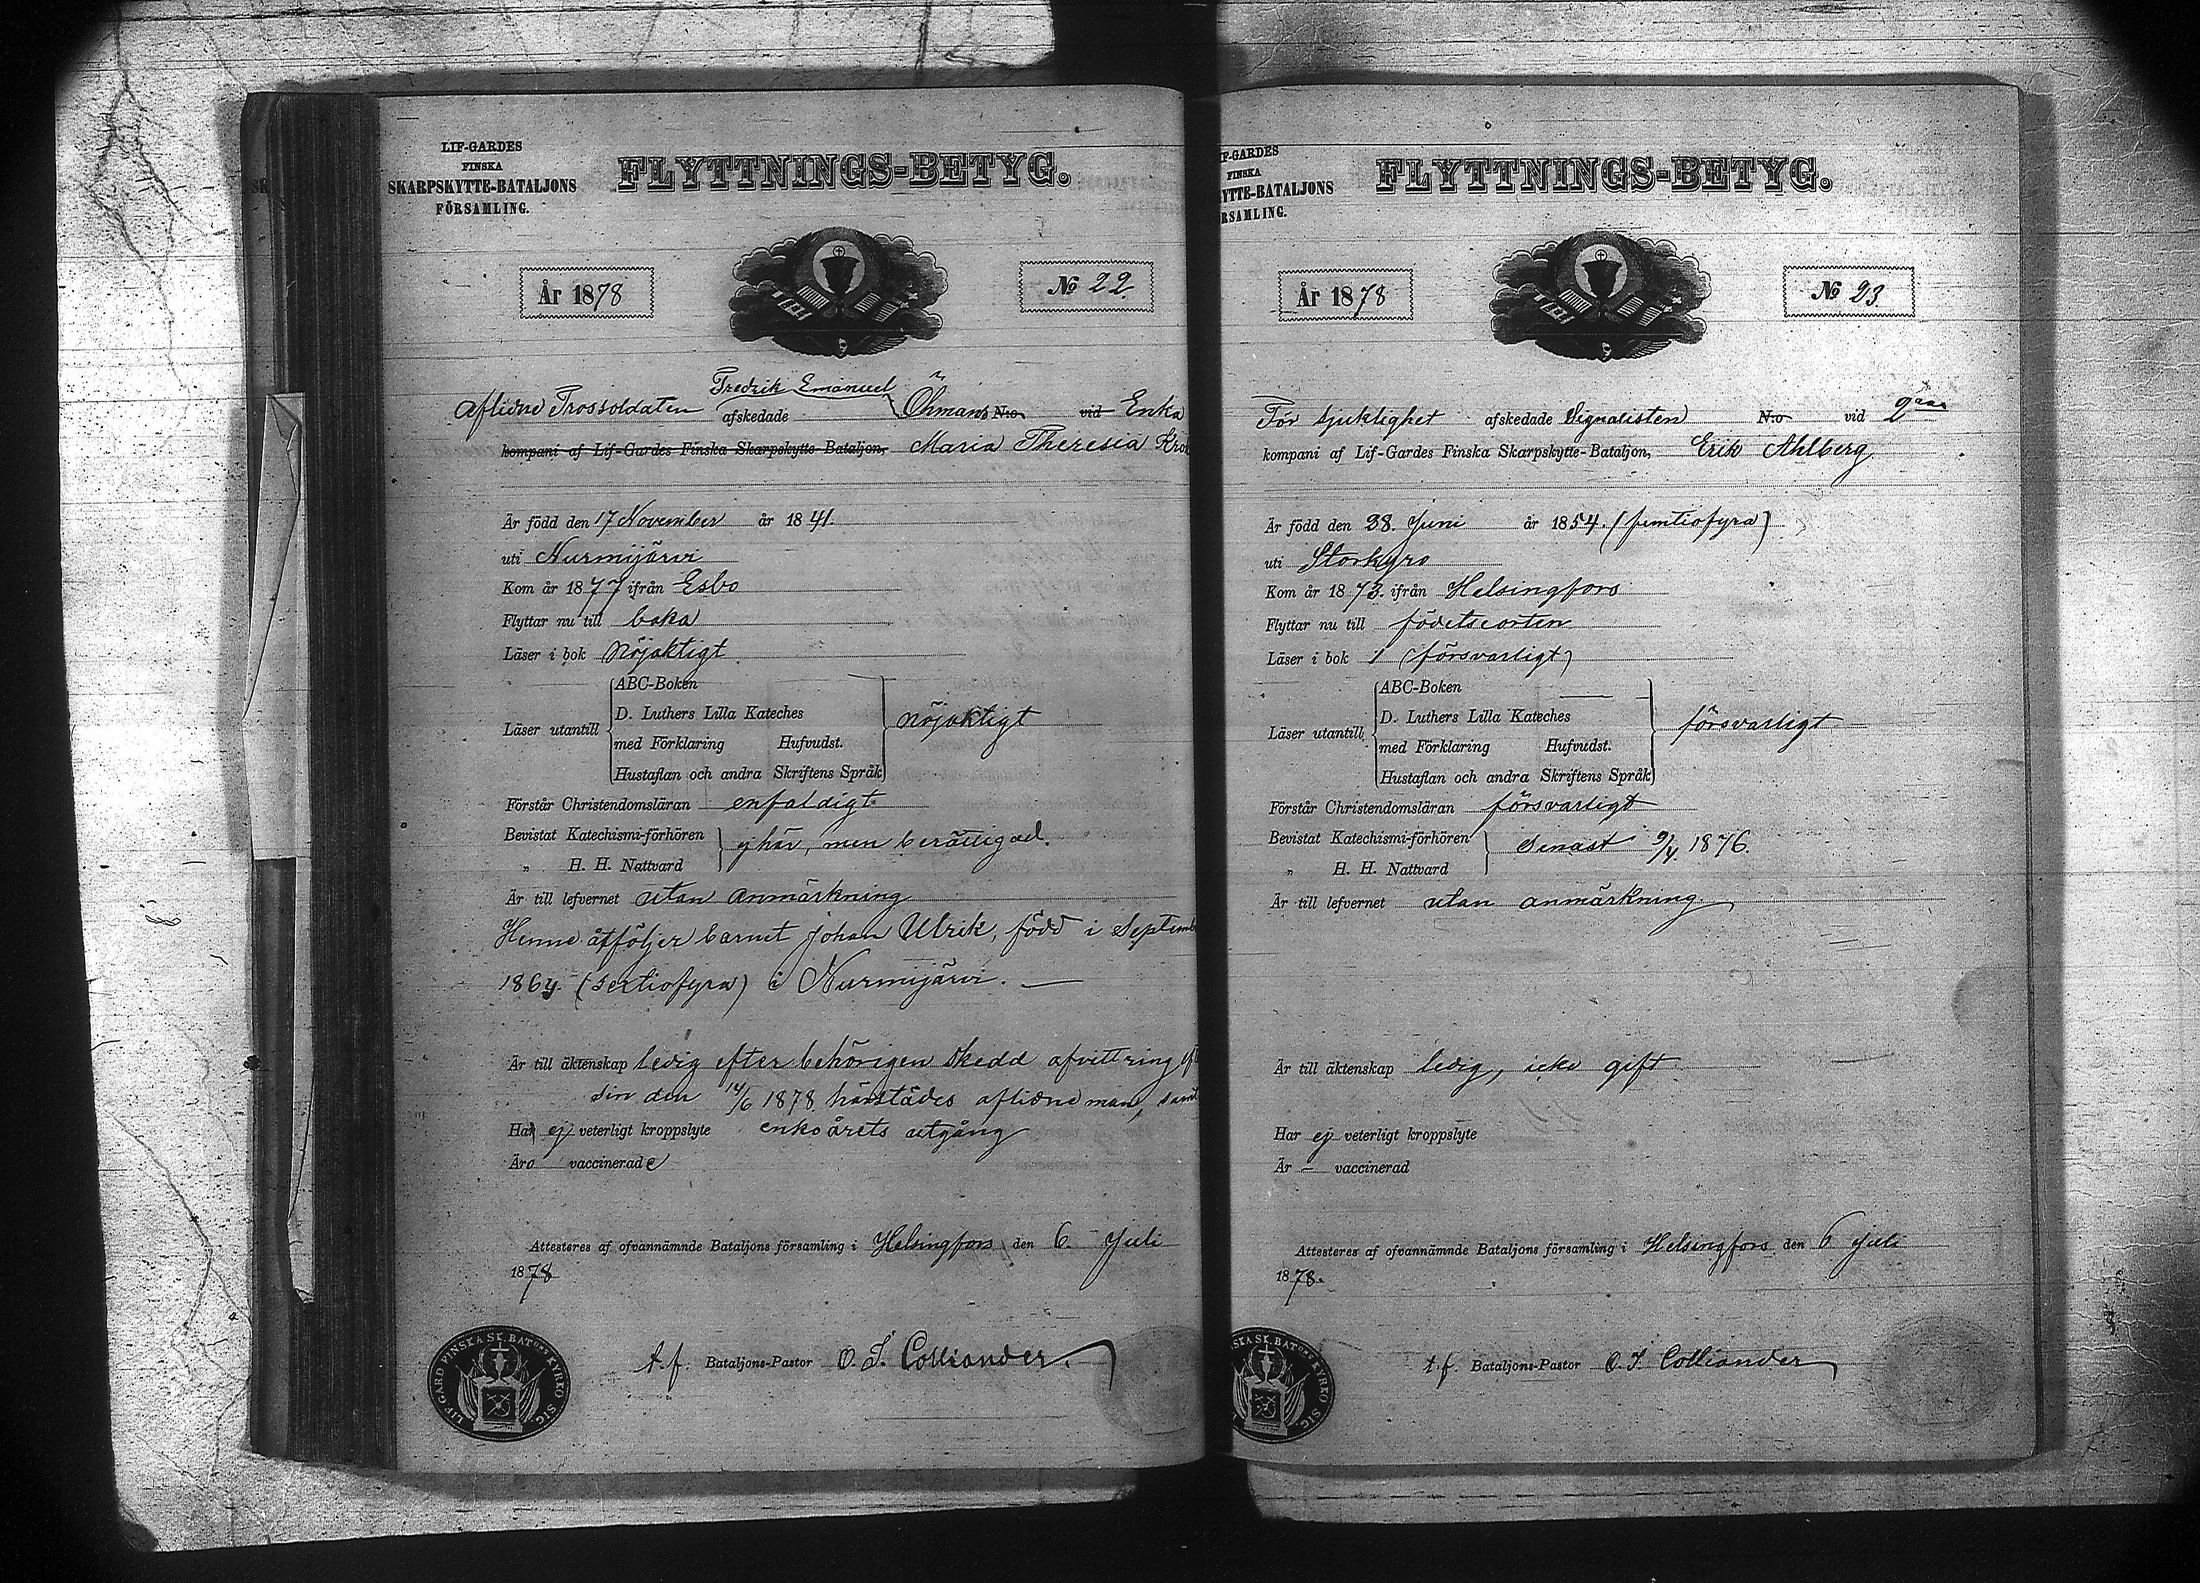 LIF-GARDES
FINSKA
SKARPSKYTTE-BATALJONS
FÖRSAMLING.
FLYTTNINGS-BETYG.
År 1878
№ 22.
Fredrik Emanuel
Aflidne Trossoldaten afskedade Öhmans N:o vid Enka
kompani af Lif-Gardes Finska Skarpskytte-Bataljon, Maria Theresia
Är född den 17 November år 1841.
uti Nurmijärvi
Kom år 1877 ifrån Esbo
Flyttar nu till baka
Läser i bok nöjaktigt
Läser utantill
ABC-Boken
D. Luthers Lilla Kateches
med Förklaring Hufvudst.
Hustaflan och andra Skriftens Språk
nöjaktigt
Förstår Christendomsläran enfaldigt.
Bevistat Katechismi-förhören
„ H. H. Nattvard
ej här, men berättigad.
Är till lefvernet utan anmärkning
Henne åtföljer barnet Johan Ulrik, född i Septemb
1864. (sextiofyra) i Nurmijärvi. —
Är till äktenskap ledig efter behörigen skedd afvittring
sin den 14/6 1878 härstädes aflidne man, samt
Har ej veterligt kroppslyte enkoårets utgång
Äro vaccinerade
Attesteres af ofvannämnde Bataljons församling i Helsingfors den 6. Juli
1878
LIF-GARD FINSKA SK. BAT:ONS KYRKO SIG.
t. f. Bataljons-Pastor O. I. Colliander.
F-GARDES
FINSKA
YTTE-BATALJONS
RSAMLING.
FLYTTNINGS-BETYG.
År 1878
№ 23
För sjuklighet afskedade Signalisten N:o vid 2dra
kompani af Lif-Gardes Finska Skarpskytte-Bataljon, Erik Ahlberg
Är född den 28. Juni år 1854. (femtiofyra)
uti Storkyro
Kom år 1873. ifrån Helsingfors
Flyttar nu till födelseorten
Läser i bok 1 (försvarligt)
Läser utantill
ABC-Boken
D. Luthers Lilla Kateches
med Förklaring Hufvudst.
Hustaflan och andra Skriftens Språk
försvarligt
Förstår Christendomsläran försvarligt
Bevistat Katechismi-förhören
„ H. H. Nattvard
senast 9/4 1876.
Är till lefvernet utan anmärkning.
Är till äktenskap ledig, icke gift
Har ej veterligt kroppslyte
Är – vaccinerad
Attesteres af ofvannämnde Bataljons församling i Helsingfors den 6 Juli
1878.
SKA SK. BAT:ONS KYRKO SIG.
t. f. Bataljons-Pastor O. I. Colliander